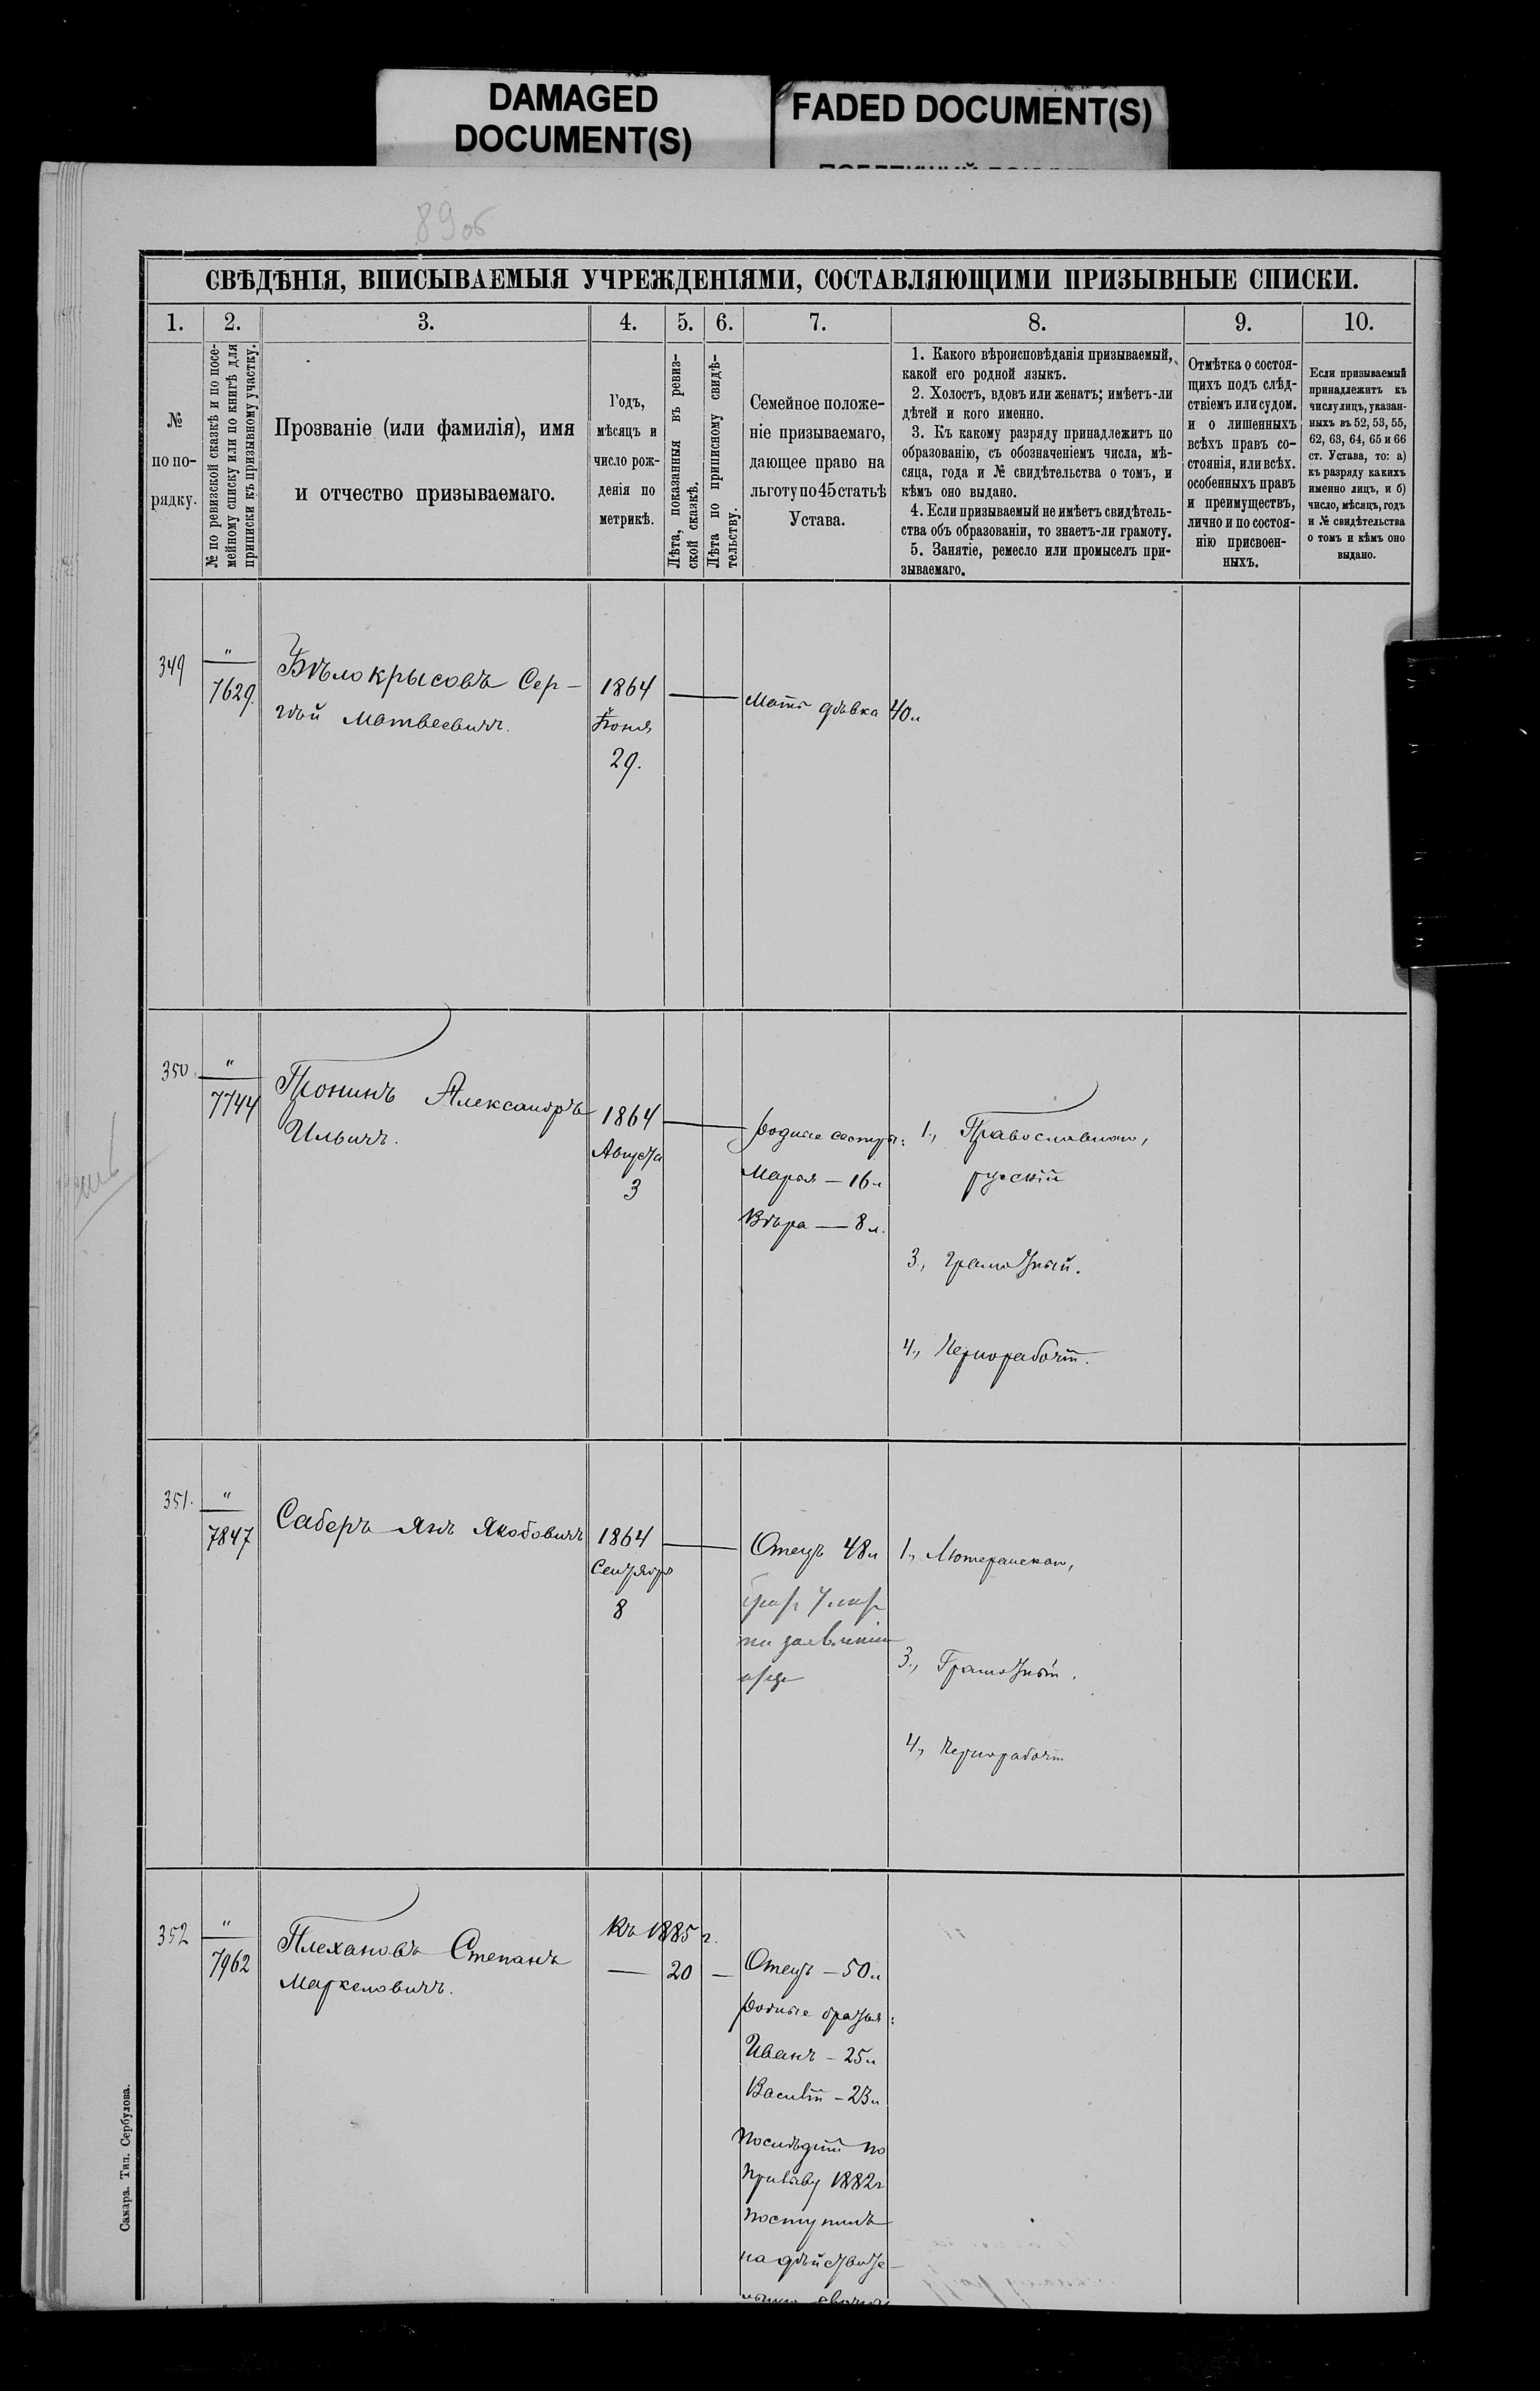 DAMAGED
DOCUMENT(S)
FADED DOCUMENT(S)
89об
СВѢДѢНІЯ, ВПИСЫВАЕМЫЯ УЧРЕЖДЕНІЯМИ, СОСТАВЛЯЮЩИМИ ПРИЗЫВНЫЕ СПИСКИ.
1. 2. 3. 4. 5. 6. 7. 8. 9. 10.
№
по по-
рядку.
№ по ревизской сказкѣ и по посе-
мейному списку или по книгѣ для
приписки къ призывному участку.
Прозваніе (или фамилія), имя
и отчество призываемаго.
Годъ,
мѣсяцъ и
число рож-
денія по
метрикѣ.
Лѣта, показанныя въ ревиз-
ской сказкѣ.
Лѣта по приписному свидѣ-
тельству.
Семейное положе-
ніе призываемаго,
дающее право на
льготу по 45 статьѣ
Устава.
1. Какого вѣроисповѣданія призываемый,
какой его родной языкъ.
2. Холостъ, вдовъ или женатъ; имѣетъ-ли
дѣтей и кого именно.
3. Къ какому разряду принадлежитъ по
образованію, съ обозначеніемъ числа, мѣ-
сяца, года и № свидѣтельства о томъ, и
кѣмъ оно выдано.
4. Если призываемый не имѣетъ свидѣтель-
ства объ образованіи, то знаетъ-ли грамоту.
5. Занятіе, ремесло или промыселъ при-
зываемаго.
Отмѣтка о состоя-
щихъ подъ слѣд-
ствіемъ или судом.
и о лишенныхъ
всѣхъ правъ со-
стоянія, или всѣх.
особенныхъ правъ
и преимуществъ,
лично и по состоя-
нію присвоен-
ныхъ.
Если призываемый
принадлежитъ къ
числу лицъ, указан-
ныхъ въ 52, 53, 55,
62, 63, 64, 65 и 66
ст. Устава, то: а)
къ разряду какихъ
именно лицъ, и б)
число, мѣсяцъ, годъ
и № свидѣтельства
о томъ и кѣмъ оно
выдано.
349
"
7629.
Бѣлокрысовъ Сер-
гѣй Матвеевичъ.
1864
Іюня
29.
Мать дѣвка 40 л
350.
"
7744
Пронинъ Александръ
Ильичъ.
1864
Августа
3
родные сестры:
Марья — 16 л
Вѣра — 8 л.
1., Православнаго,
русскій
3., грамотный.
4., Чернорабочій.
351.
"
7847
Саберъ Янъ Якобовичъ
1864
Сентября
8
Отецъ 48 л
по заявленію
отца
1., Лютеранскаго,
3., Грамотный.
4., Чернорабочій
352
"
7962
Плехановъ Степанъ
Маркеловичъ.
Къ 1885 г.
— 20 —
Отецъ — 50 л
родные братья:
Иванъ — 25 л
Василій — 23 л
послѣдній по
призыву 1882 г
поступилъ
на дѣйствите-
Самара. Тип. Сербулова.